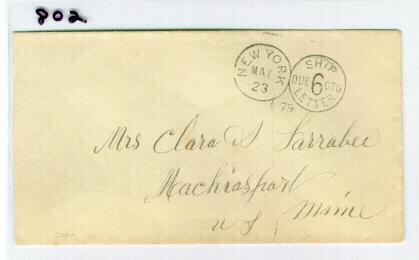 802
NEW YORK
MAY
23
79
SHIP
DUE 6 CTS
LETTER
Mrs Clara S Larrabee
Machiasport
U S Maine